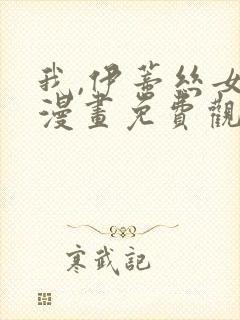 我,伊蒂絲女
漫畫免費觀
寒武記